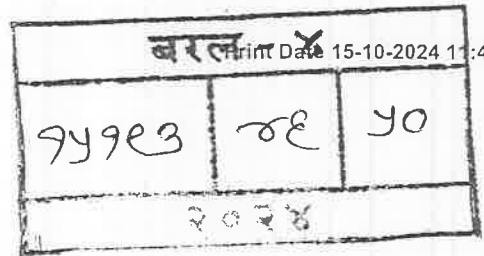 बरल - ४ Print Date 15-10-2024 11:4
१५१९३ ४६ ५०
२०२४